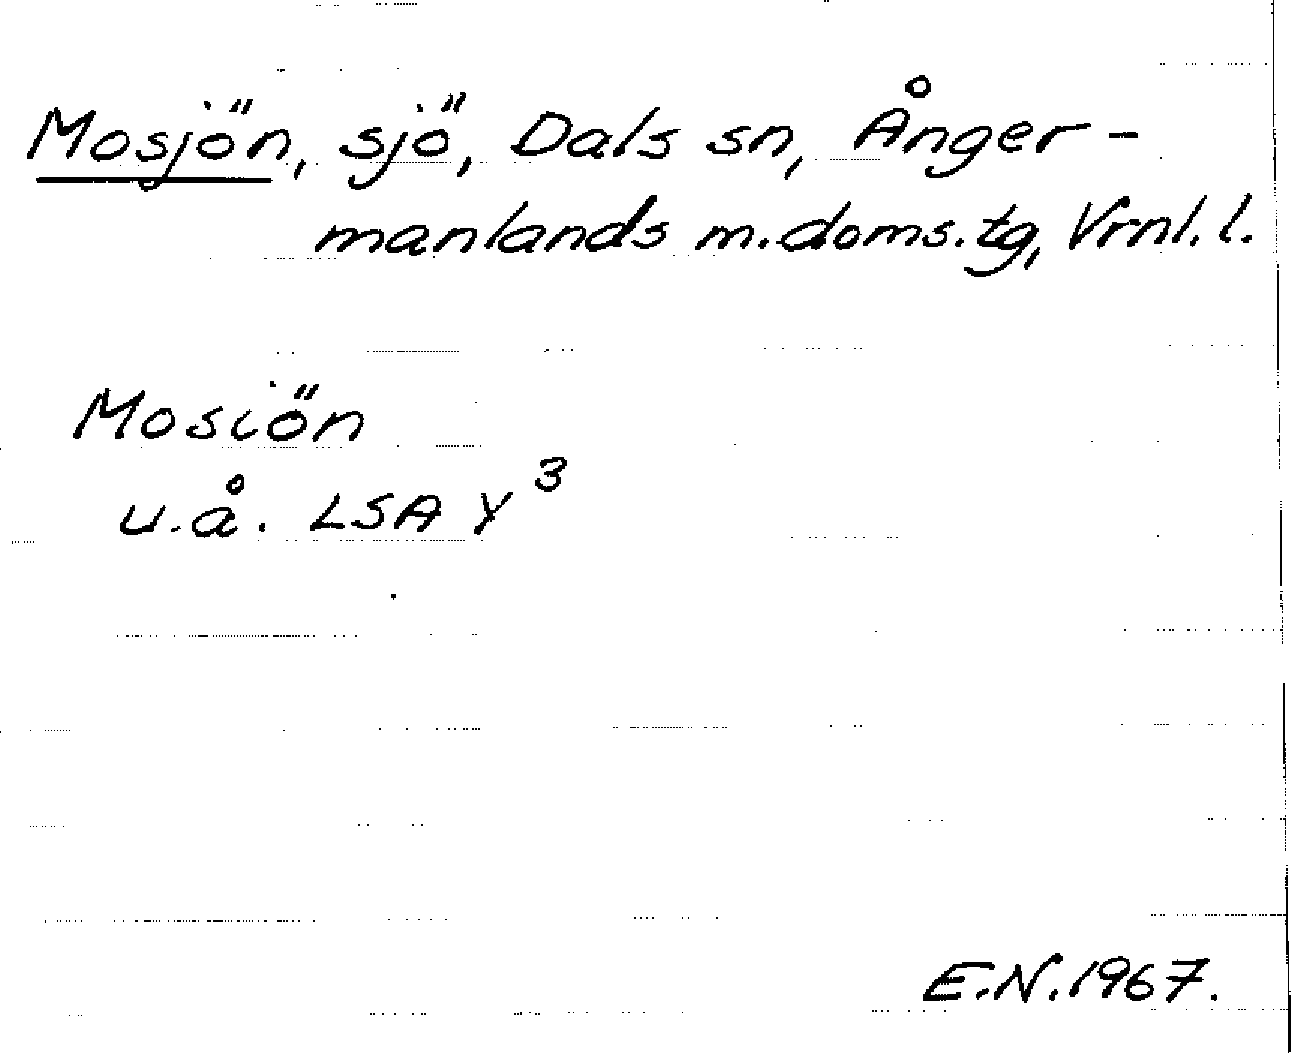 Mosjön, sjö, Dals sn, Ånger-
manlands m.doms.tg, Vrnl.l.
Mosiön
u.å. LSA Y³
E.N.1967.